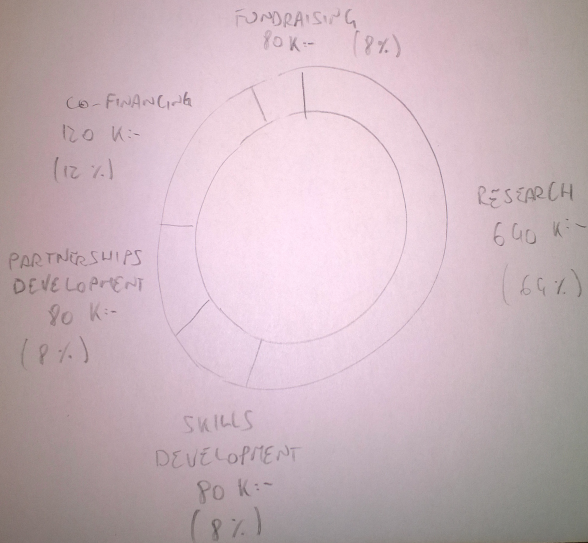 FUNDRAISING
80 K:-   (8%)
CO-FINANCING
120 K:-
(12 %)
RESEARCH
640 K:-
(64%)
PARTNERSHIPS
DEVELOPMENT
80 K:-
(8 %)
SKILLS
DEVELOPMENT
80 K:-
(8%)